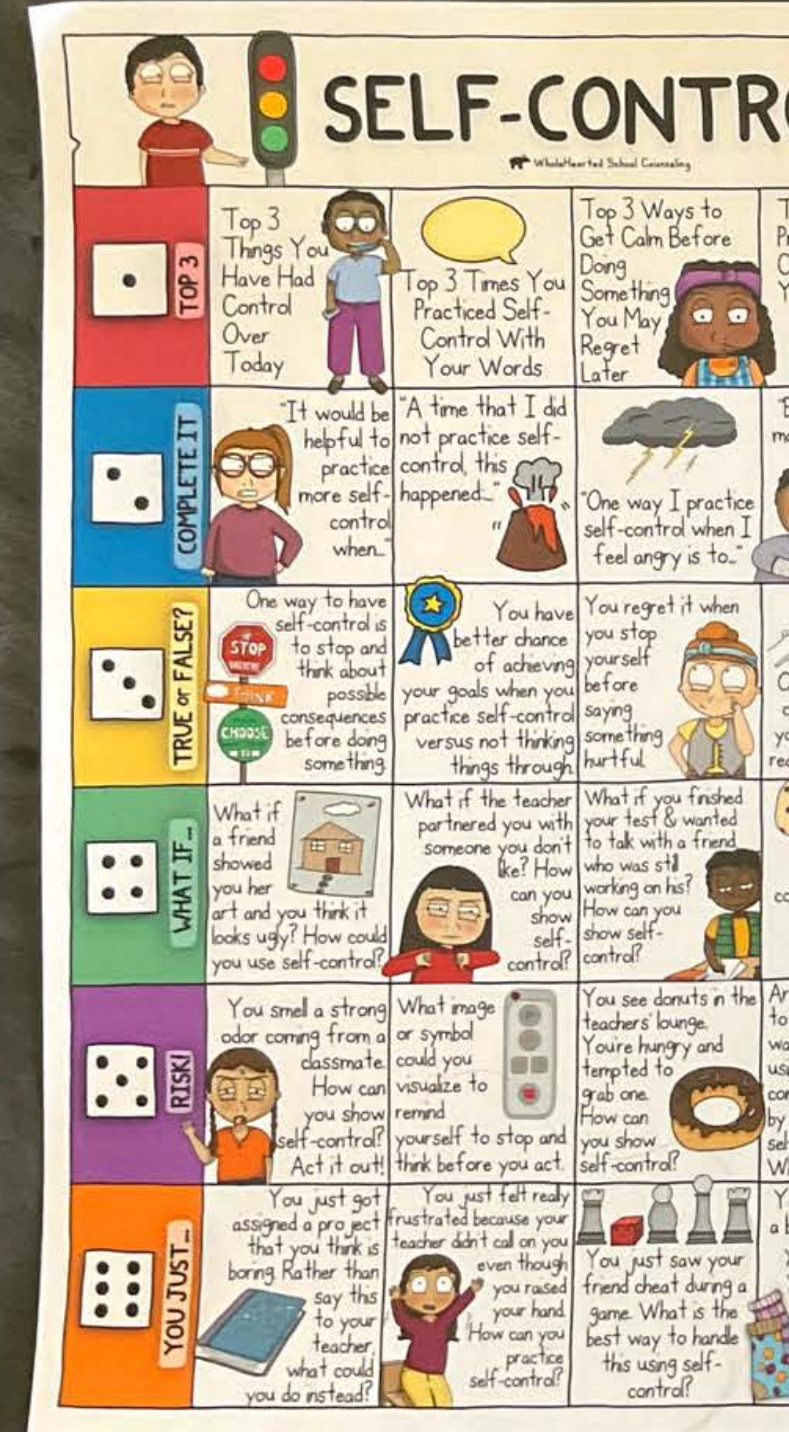 SELF-CONTRO
WholeHearted School Counseling
TOP 3
Top 3
Things You
Have Had
Control
Over
Today
Top 3 Times You
Practiced Self-
Control With
Your Words
Top 3 Ways to
Get Calm Before
Doing
Something
You May
Regret
Later
COMPLETE IT
"It would be
helpful to
practice
more self-
control
when..."
"A time that I did
not practice self-
control, this
happened..."
"One way I practice
self-control when I
feel angry is to..."
TRUE or FALSE?
One way to have
self-control is
to stop and
think about
possible
consequences
before doing
something.
STOP
THINK
CHOOSE
You have
better chance
of achieving
your goals when you
practice self-control
versus not thinking
things through.
You regret it when
you stop
yourself
before
saying
something
hurtful.
WHAT IF...
What if
a friend
showed
you her
art and you think it
looks ugly? How could
you use self-control?
What if the teacher
partnered you with
someone you don't
like? How
can you
show
self-
control?
What if you finished
your test & wanted
to talk with a friend
who was still
working on his?
How can you
show self-
control?
RISK!
You smell a strong
odor coming from a
classmate.
How can
you show
self-control?
Act it out!
What image
or symbol
could you
visualize to
remind
yourself to stop and
think before you act.
You see donuts in the
teachers' lounge.
You're hungry and
tempted to
grab one.
How can
you show
self-control?
YOU JUST...
You just got
assigned a project
that you think is
boring. Rather than
say this
to your
teacher,
what could
you do instead?
You just felt really
frustrated because your
teacher didn't call on you
even though
you raised
your hand.
How can you
practice
self-control?
You just saw your
friend cheat during a
game. What is the
best way to handle
this using self-
control?